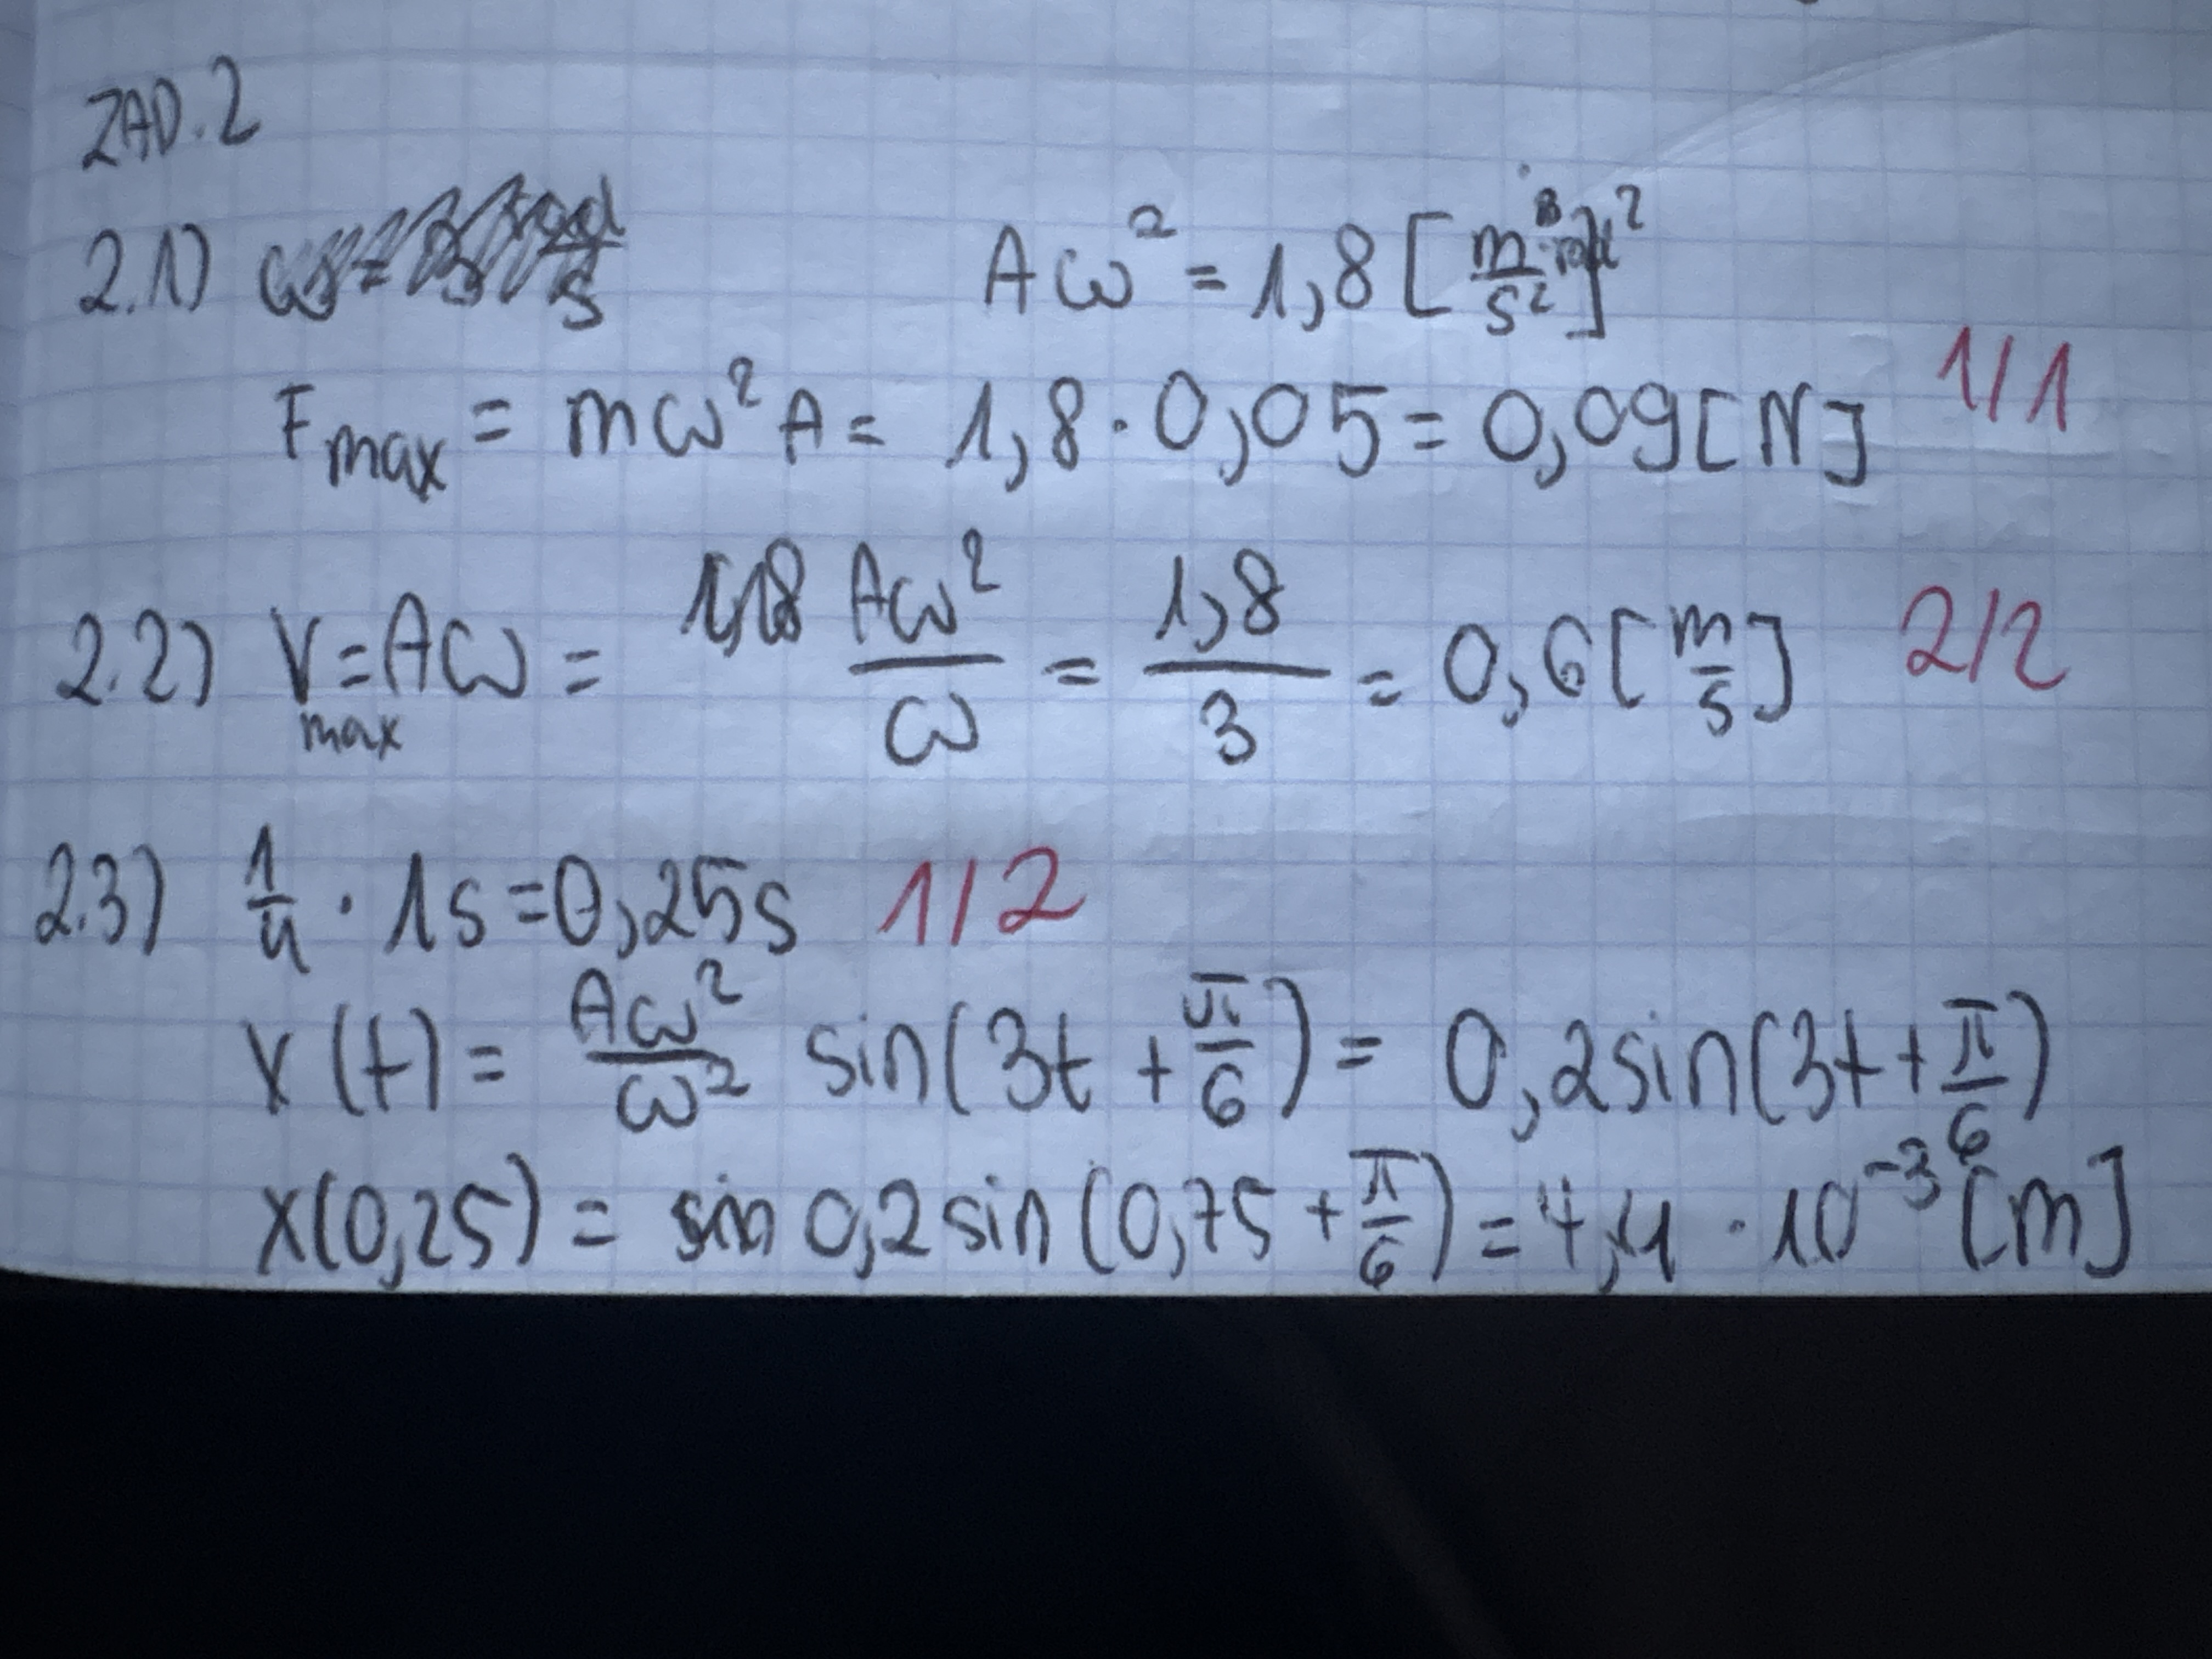 ZAD. 2
2.1) Aω² = 1,8 [m/s²]
F max = mω²A = 1,8 · 0,05 = 0,09 [N] 1/1
2.2) V max = Aω = Aω²/ω = 1,8/3 = 0,6 [m/s] 2/2
2.3) 1/4 · 1s = 0,25s 1/2
x(t) = Aω²/ω² sin(3t + π/6) = 0,2sin(3t + π/6)
x(0,25) = 0,2 sin(0,75 + π/6) = 4,4 · 10⁻³ [m]